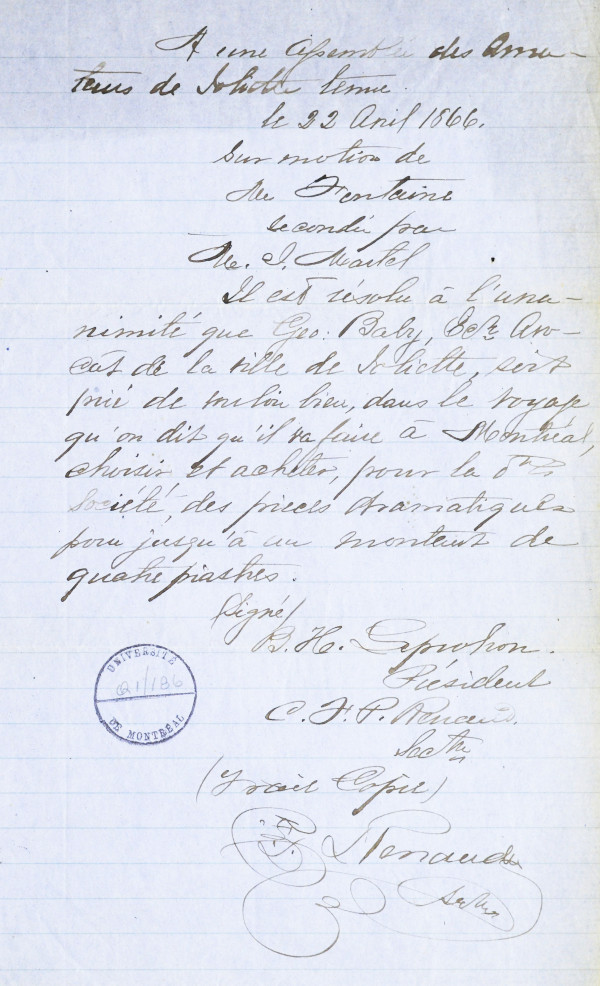 A une assemblée des Ama-
teurs de Joliette tenue
le 22 Avril 1866.
Sur motion de
Mr Fontaine
secondé par
Mr. J. Martel
Il est résolu à l'una-
nimité que Geo. Baby, Ecr Avo-
cat de la ville de Joliette, soit
prié de vouloir bien, dans le voyage
qu'on dit qu'il va faire à Montréal,
choisir et acheter, pour la dte
Société, des pieces dramatiques
pour jusqu'à un montant de
quatre piastres.
(Signé)
B. H. Leprohon.
Président
C. F. P. Renaud.
(Vraie Copie)
Renaud
UNIVERSITÉ
Q1/136
DE MONTRÉAL